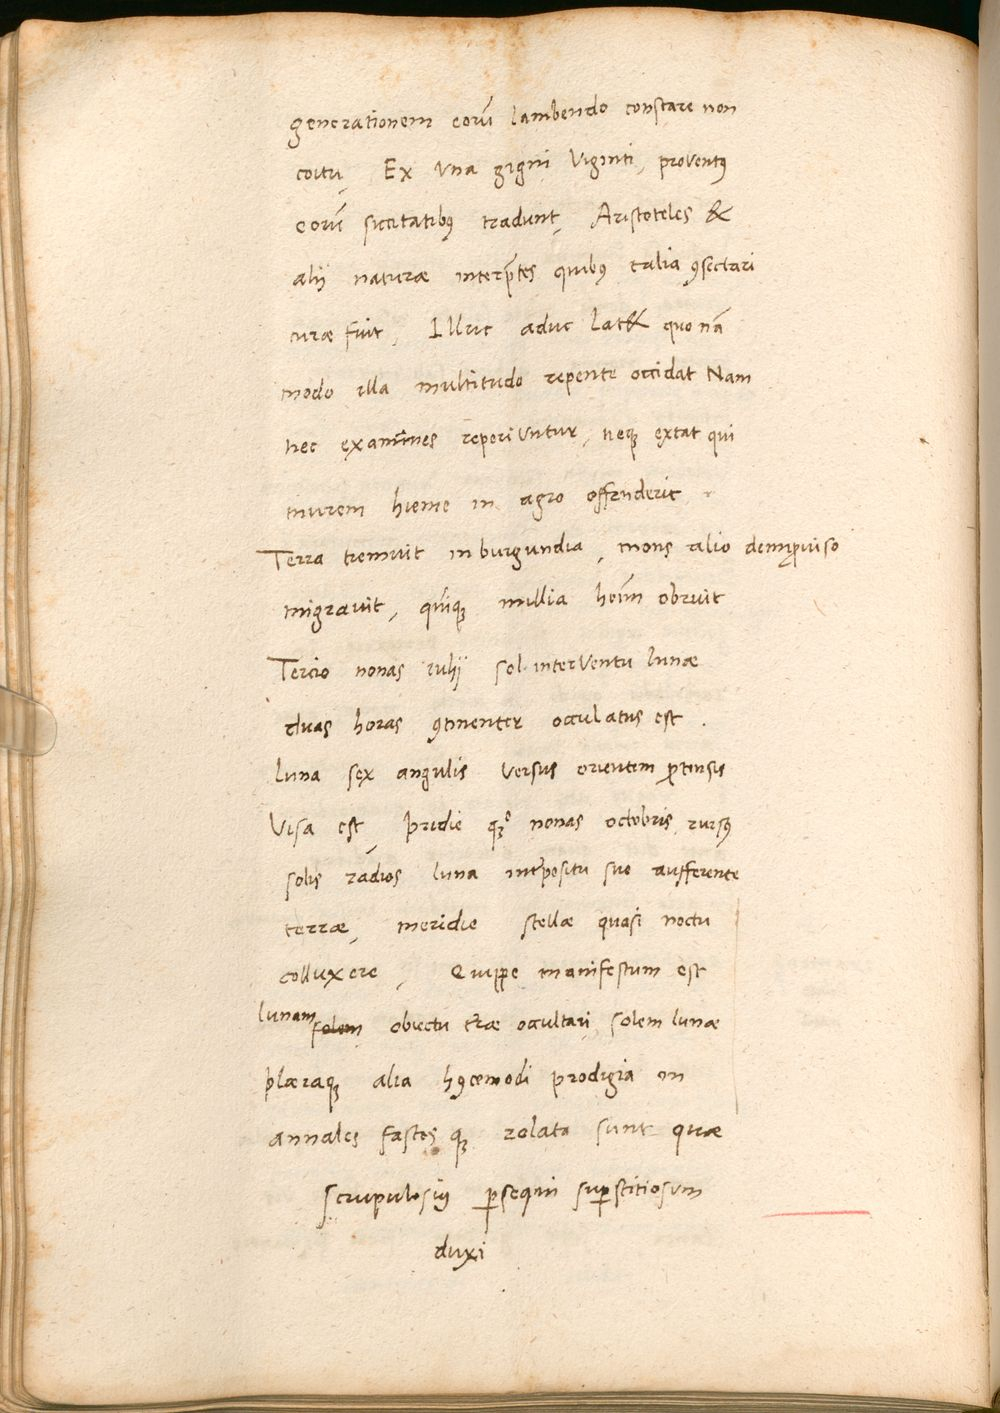 generationem eorū lambendo constare non
coitu, Ex vna gigni viginti, proventꝰ
eorū siccitatibꝰ tradunt, Aristoteles &
alij naturæ interp̄tes quibꝰ talia ꝯsectari
curæ fuit, Illuc aduc lat& quo nā
modo illa multitudo repente occidat Nam
nec examines reperiuntur, neqꝫ extat qui
murem hieme in agro offenderit
Terra tremuit in burgundia, mons alio deīꝓviso
migrauit, qn̄qꝫ millia hoīm obruit
Tercio nonas iulij sol interventu lunæ
duas horas ꝯtinenter occulatus est .
luna sex angulis versus orientem ꝓtensis
visa est, pridie qꝫ nonas octobris rursꝰ
solis radios luna int̄positu suo aufferente
terræ, meridie stellæ quasi noctu
colluxere, Quippe manifestum est
lunam solem obiectu t̄ræ occultari, solem lunæ
plæraqꝫ alia hꝰcemodi prodigia in
annales fastos qꝫ relata sunt quæ
scrupulosiꝰ ꝑsequi suꝑstitiosum
duxi